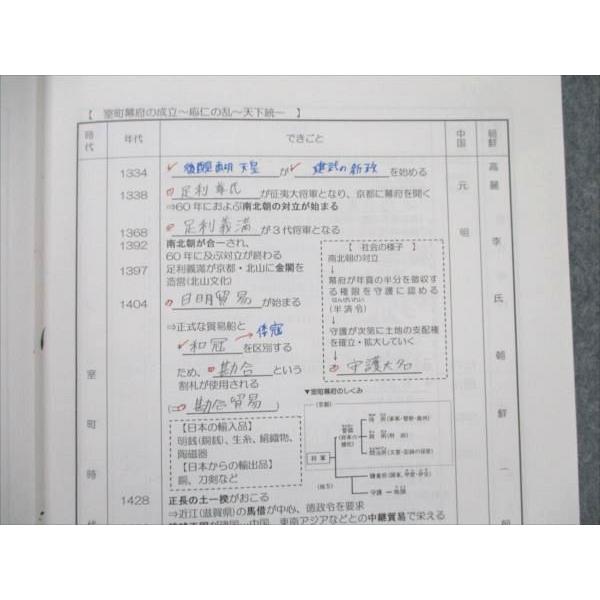 【 室町幕府の成立～応仁の乱～天下統一 】
時代 年代 できごと 中国 朝鮮
1334 後醍醐 天皇 が 建武の新政 を始める
1338 足利尊氏 が征夷大将軍となり、京都に幕府を開く
⇒60年におよぶ南北朝の対立が始まる
1368 足利義満 が3代将軍となる
1392 南北朝が合一され、
60年に及ぶ対立が終わる
1397 足利義満が京都・北山に金閣を
造営(北山文化)
1404 日明貿易 が始まる
⇒正式な貿易船と 倭寇
和冦 を区別する
ため、 勘合 という
割札が使用される
(⇒ 勘合貿易 )
【日本の輸入品】
明銭(銅銭)、生糸、絹織物、
陶磁器
【日本からの輸出品】
銅、刀剣など
【 社会の様子 】
南北朝の対立
↓
幕府が年貢の半分を徴収す
る権限を守護に認める
(半済令)
↓
守護が次第に土地の支配権
を確立・拡大していく
↓
守護大名
▼室町幕府のしくみ
(京都)
将軍
管領
(将軍の
補佐)
侍所
政所
問注所
(地方)
鎌倉府
守護 地頭
1428 正長の土一揆がおこる
⇒近江(滋賀県)の馬借が中心、徳政令を要求
中国、東南アジアなどとの中継貿易で栄える
室町時代
元
明
高麗
李氏朝鮮